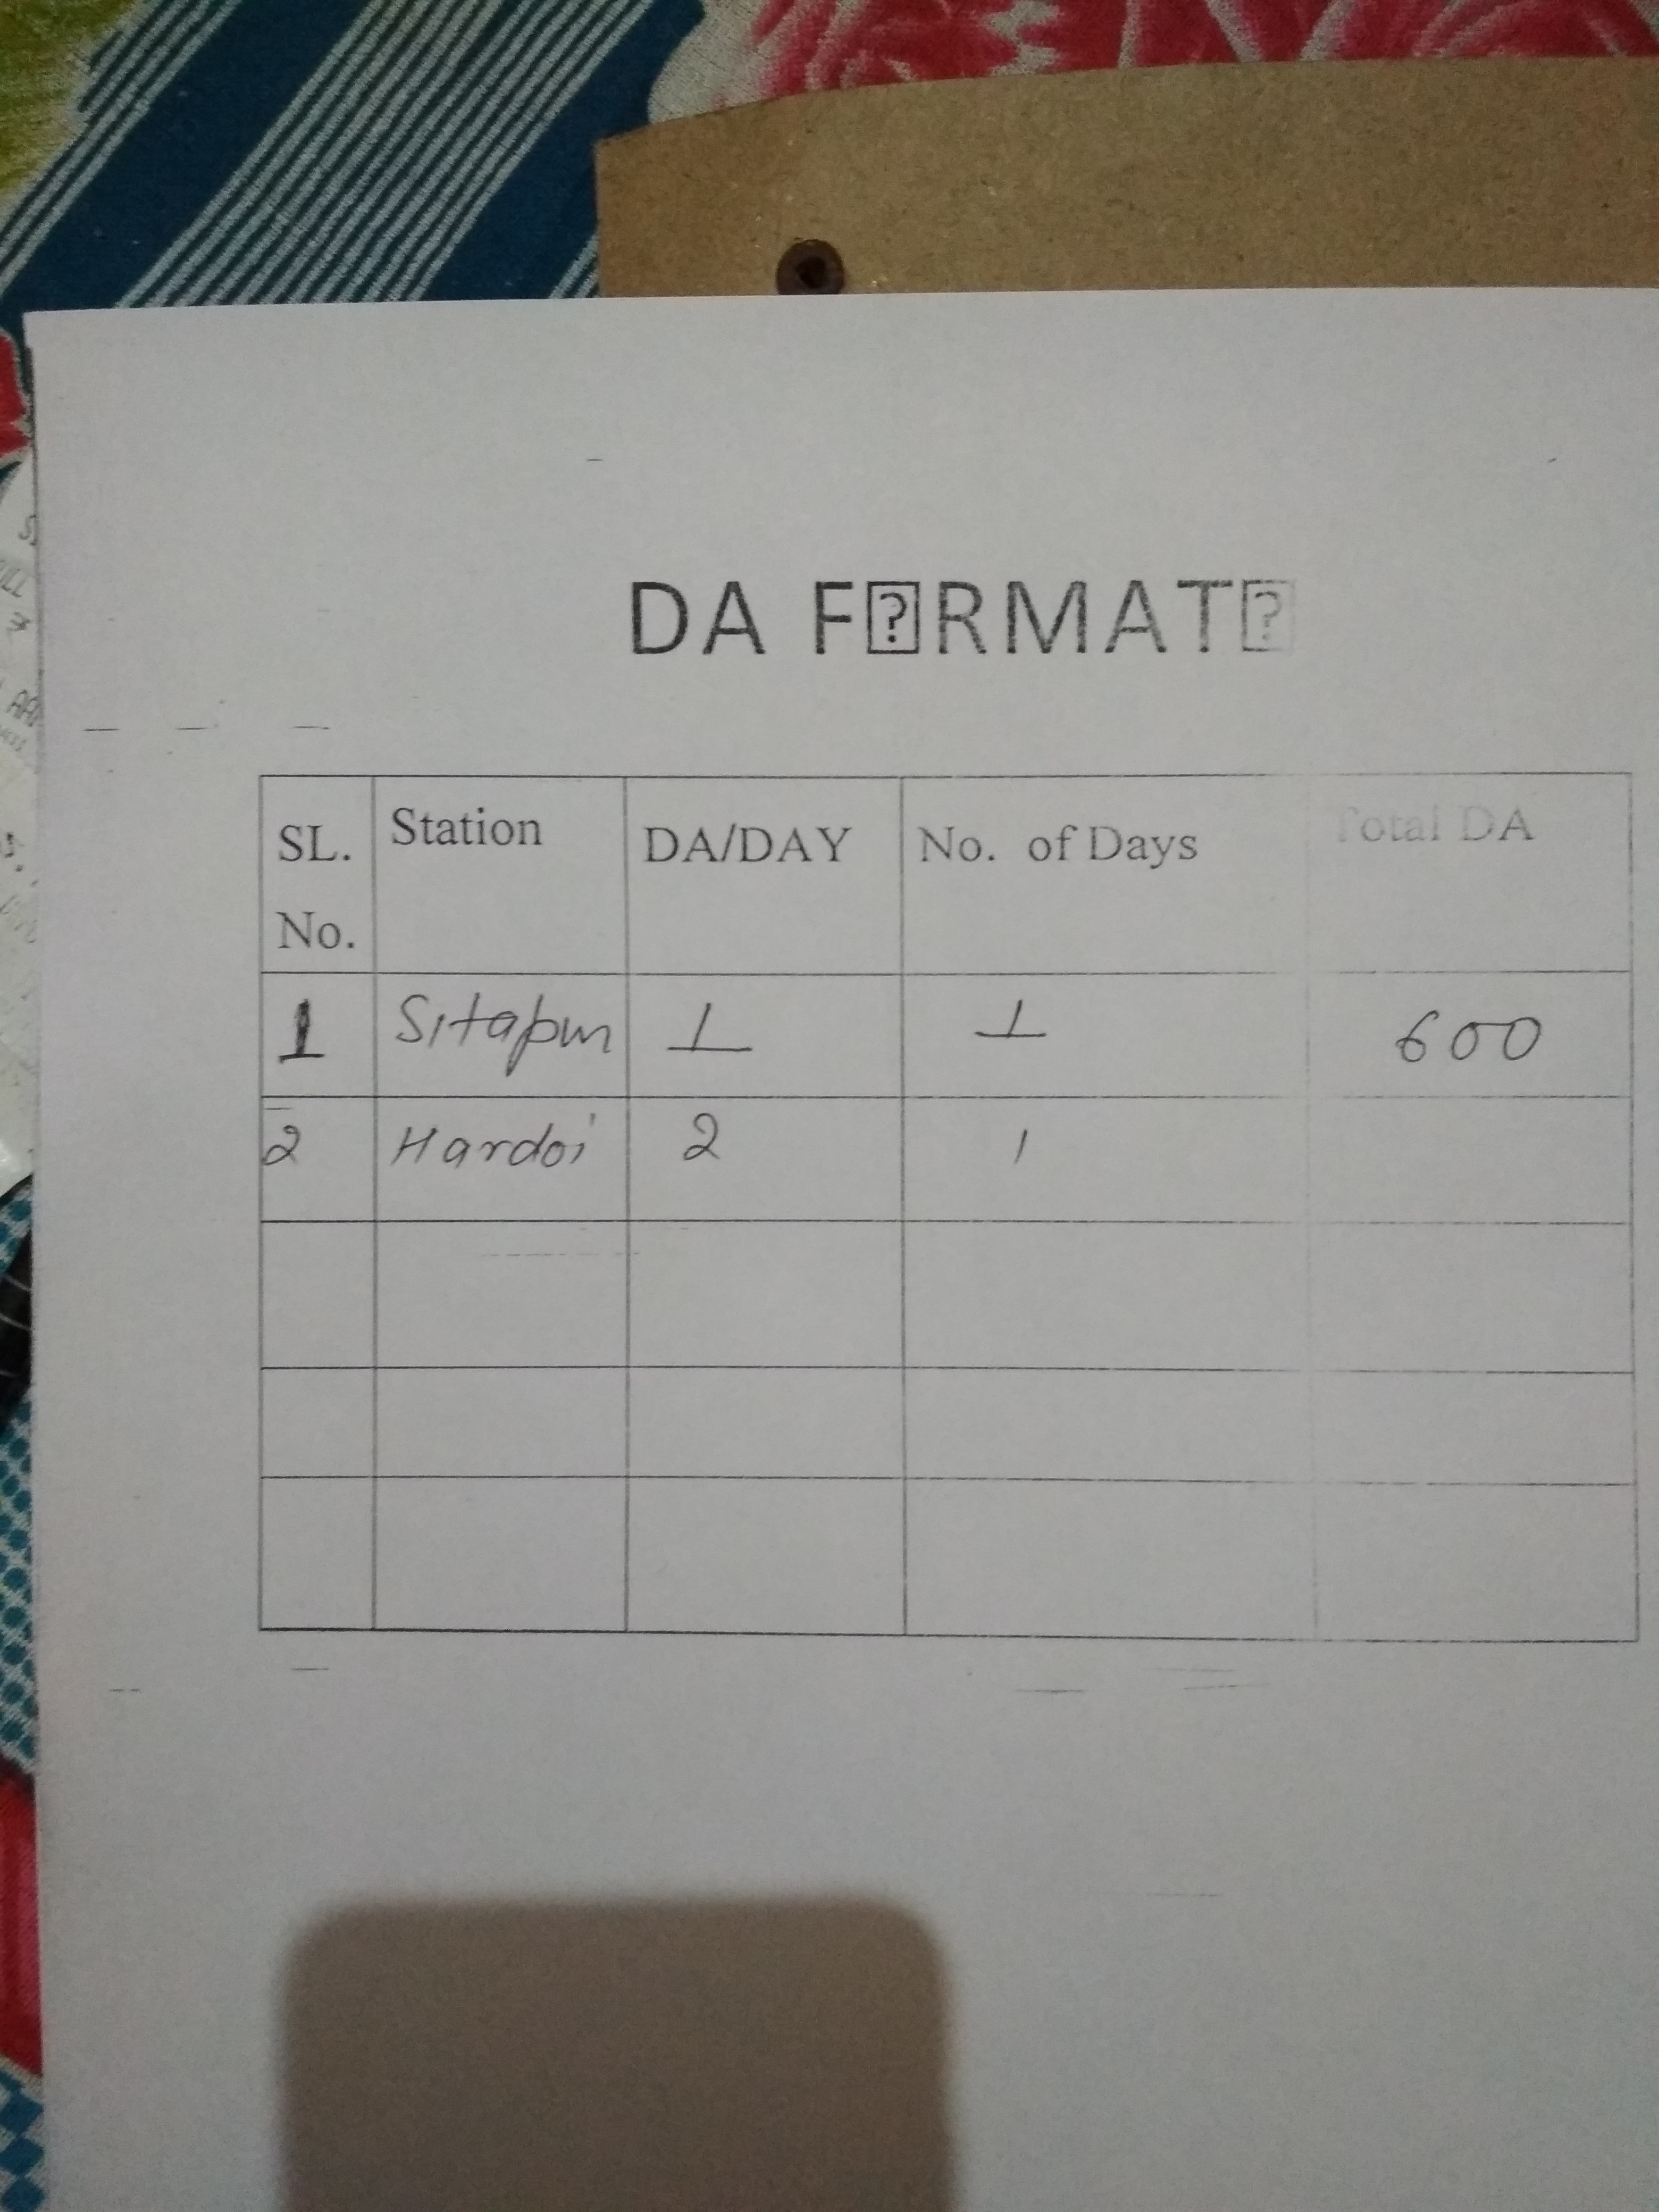 DA F�RMAT�
SL. No. Station DA/DAY No. of Days Total DA
1 Sitapur 1 1 600
2 Hardoi 2 1